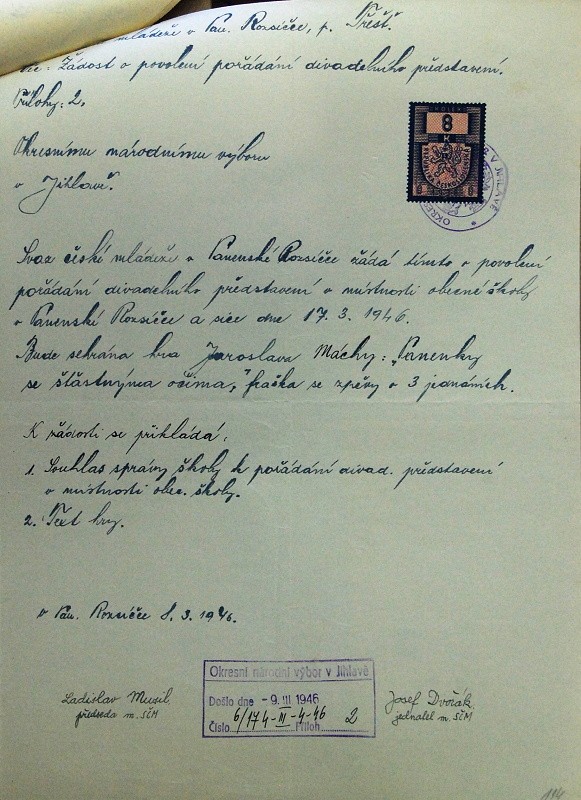 mládeže v Pan. Rozsíčce, p. Třešť.
Věc: Žádost o povolení pořádání divadelního představení.
Přílohy: 2.
8
K
REPUBLIKA ČESKOSLOVENSKÁ
8 8
OKRES V JIHLAVĚ
Okresnímu národnímu výboru
v Jihlavě.
Svaz české mládeže v Panenské Rozsíčce žádá tímto o povolení
pořádání divadelního představení v místnosti obecné školy
v Panenské Rozsíčce a sice dne 17. 3. 1946.
Bude sehrána hra Jaroslava Máchy: „Panenky
se šťastnýma očima," fraška se zpěvy o 3 jednáních.
K žádosti se přikládá:
1. Souhlas správy školy k pořádání divad. představení
v místnosti obec. školy.
2. Text hry.
V Pan. Rozsíčce 8. 3. 1946.
Okresní národní výbor v Jihlavě
Došlo dne - 9. III 1946
Číslo 6/174-III-4-46 Příloh 2
Ladislav Musil,
předseda m. SČM
Josef Dvořák,
jednatel m. SČM